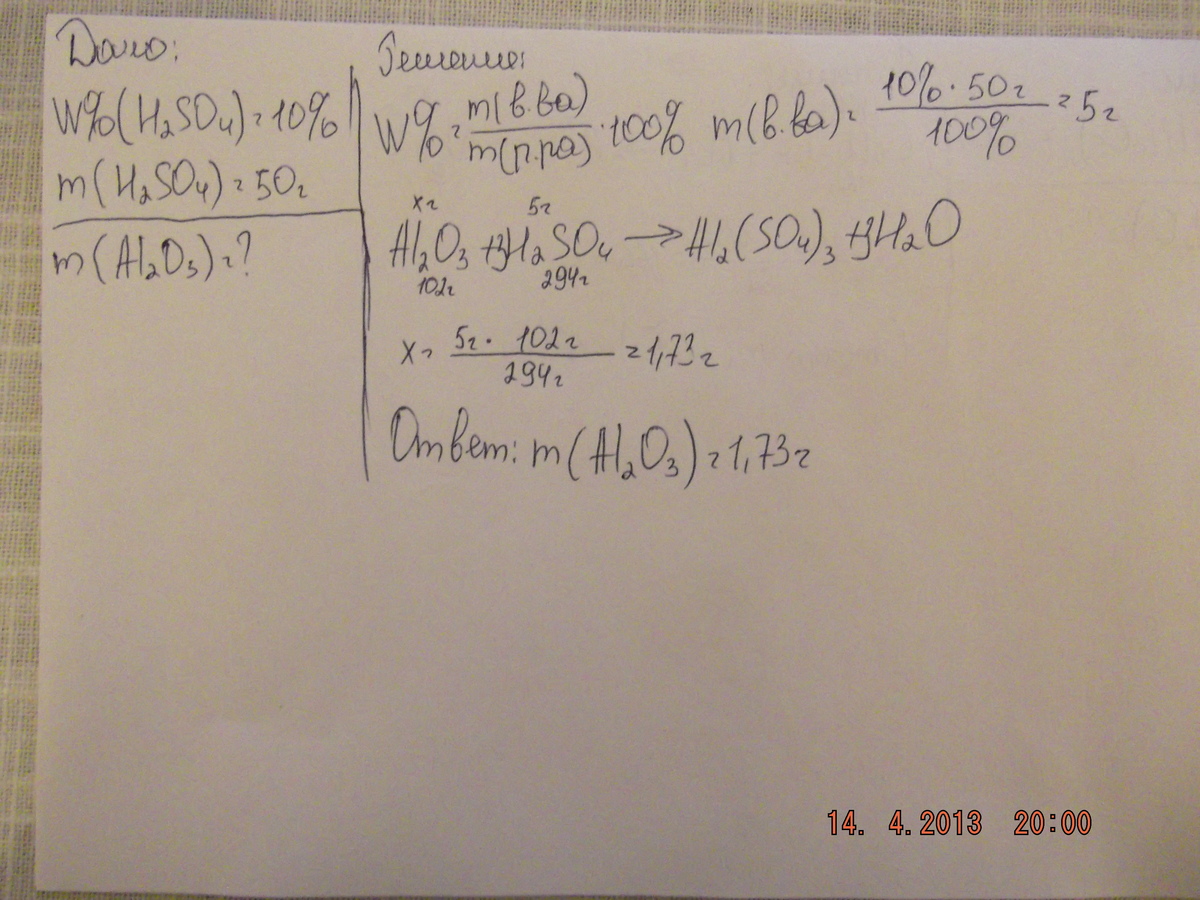 Дано:
W%(H₂SO₄)=10%
m(H₂SO₄)=50г
m(Al₂O₃)=?
Решение:
W%=m(в.ва)/m(р.ра)·100% m(в.ва)=10%·50г/100%=5г
xг 5г
Al₂O₃+3H₂SO₄→Al₂(SO₄)₃+3H₂O
102г 294г
x=5г·102г/294г=1,73г
Ответ: m(Al₂O₃)=1,73г
14. 4.2013 20:00